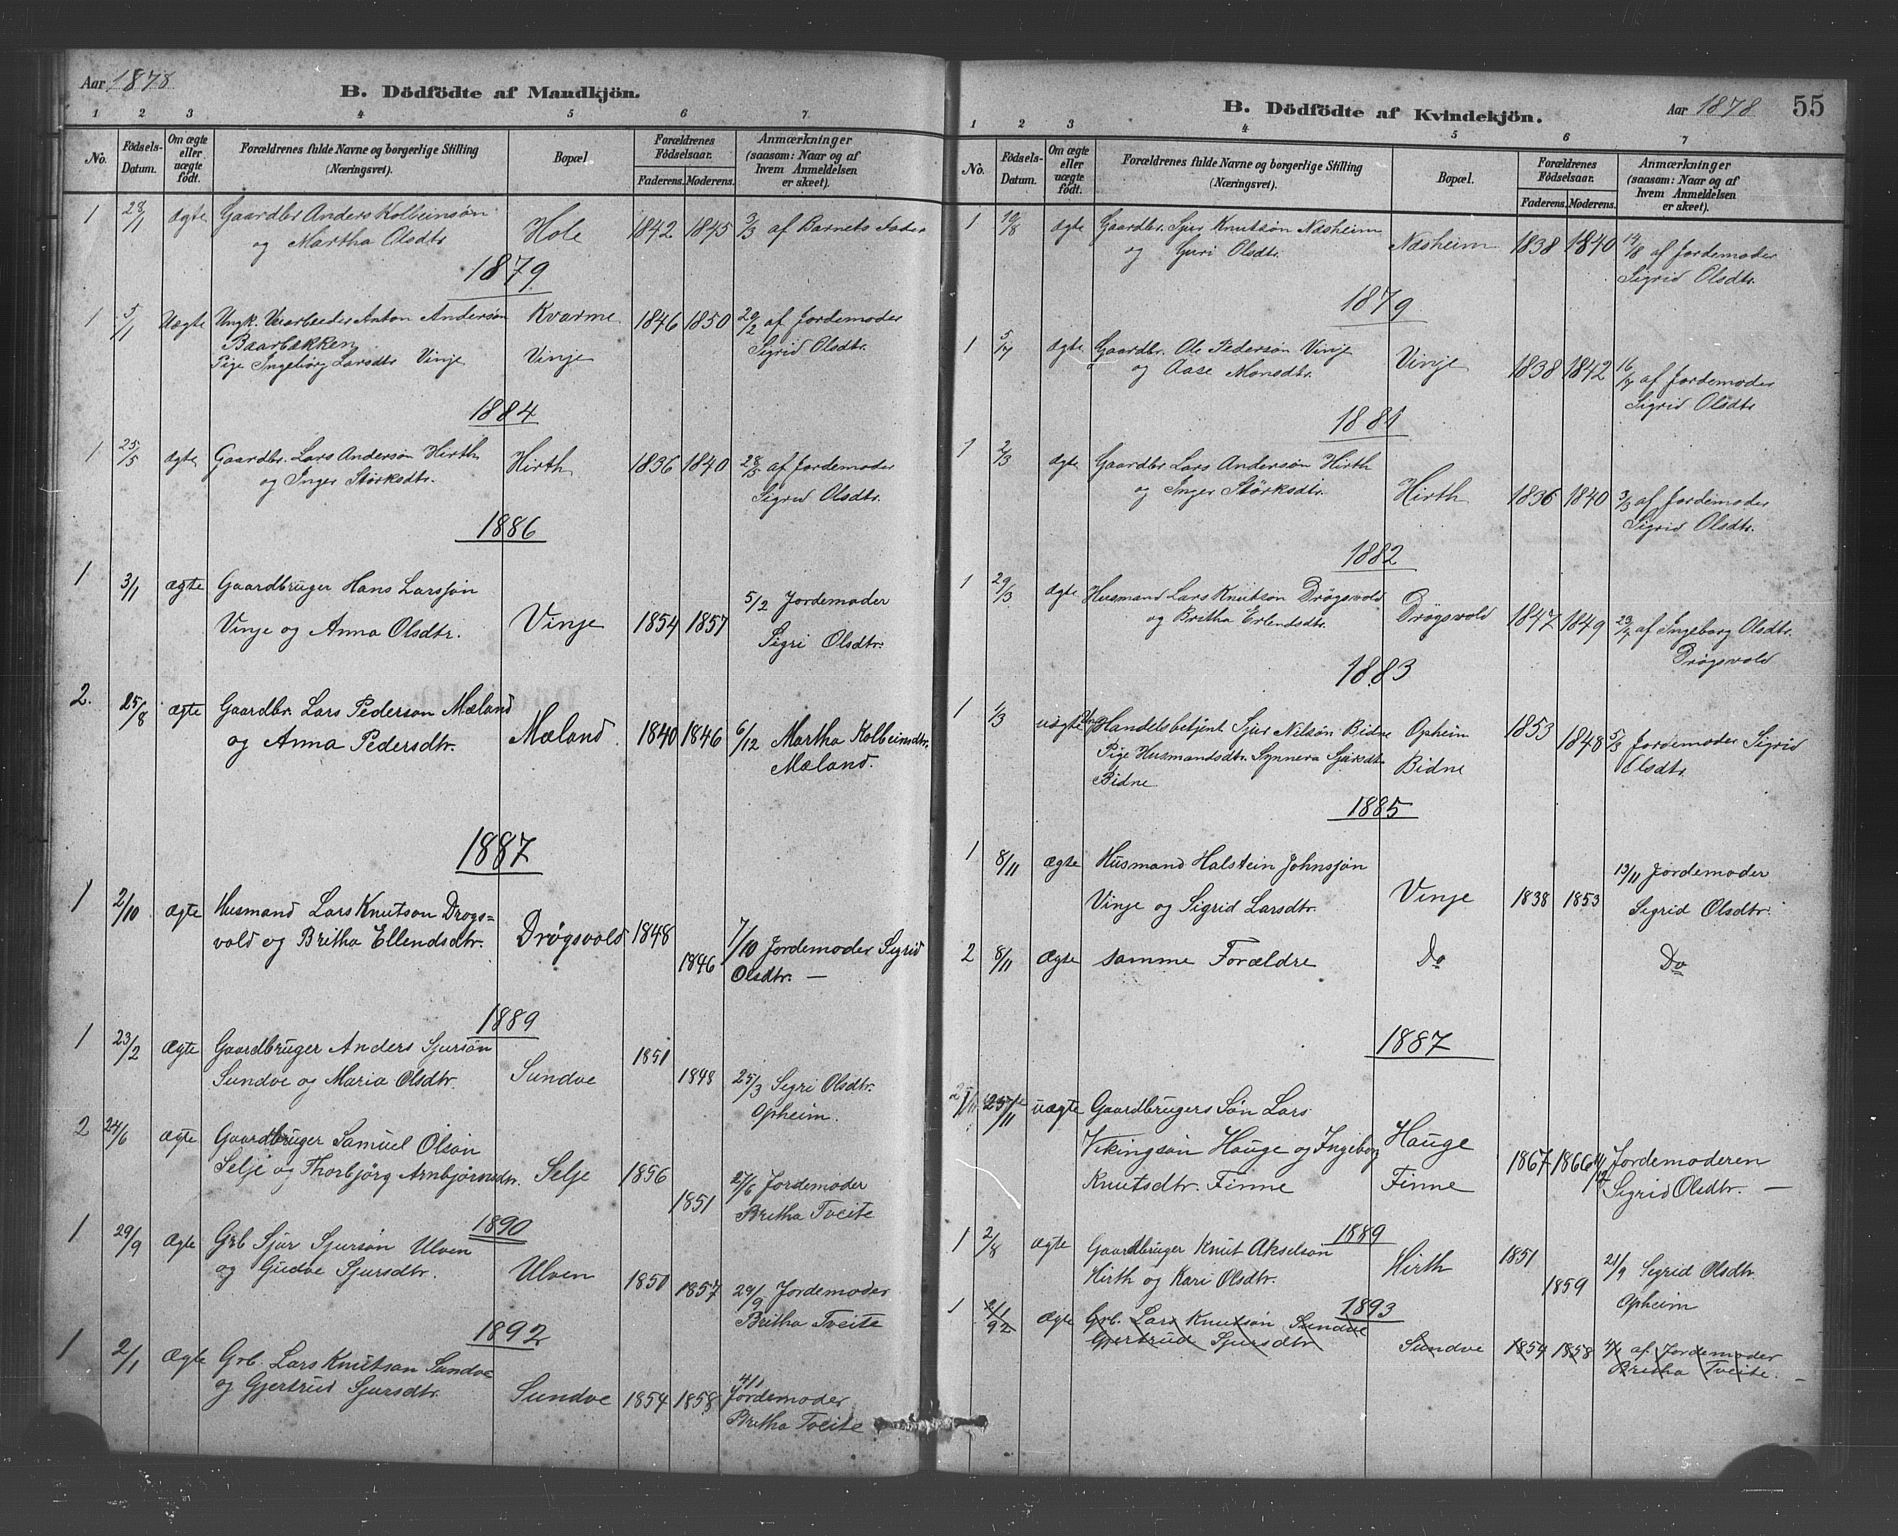 Aar 1878
B. Dödfödte af Mandkjön.
1 2 3 4 5 6 7
No. Födsels-Datum. Om ægte eller uægte födt. Forældrenes fulde Navne og borgerlige Stilling (Næringsvei). Bopæl. Forældrenes Födselsaar. Faderens. Moderens. Anmærkninger (saasom: Naar og af hvem Anmeldelsen er skeet).
1 28/1 ægte Gaardbr Anders Kolbeinsøn Hole 1842 1845 3/3 af Barnets Fader
og Martha Olsdtr
1879
1 5/1 Uægte Ungk. Anton Andersøn Kvarme 1846 1850 20/2 af Jordemoder
Baarbækken Sigrid Olsdtr.
Pige Ingebörg Larsdtr Vinje Vinje
1884
1 25/5 ægte Gaardbr. Lars Andersøn Hirth Hirth 1836 1840 28/5 af Jordemoder
og Inger Störksdtr. Sigrid Olsdtr.
1886
1 3/1 ægte Gaardbruger Hans Larssön
Vinje og Anna Olsdtr. Vinje 1854 1857 5/2 Jordemoder
Sigri Olsdtr.
2. 25/8 ægte Gaardbr. Lars Pederson Mæland
og Anna Pedersdtr. Mæland. 1840 1846 6/12 Martha Kolbeinsdtr.
Mæland.
1887
1 2/10 ægte Husmand Lars Knutson Drogs=
vold og Britha Ellendsdtr. Drøgsvold 1848 1846 7/10 Jordemoder Sigrid
Olsdtr. —
1889
1 23/2 Ægte Gaardbruger Anders Sjursøn
Sundve og Maria Olsdtr. Sundve 1851 1848 25/3 Sigri Olsdtr.
Opheim.
2 24/6 ægte Gaardbruger Samuel Olsøn
Selje og Thorbjörg Arnbjörnsdtr. Selje 1856 1851 27/6 Jordemoder
Britha Tveite
1890
1 29/9 Ægte Grb Sjur Sjursøn Ulven
og Gudve Sjursdtr. Ulven 1851 1857 29/9 Jordemoder
Britha Tveite
1892
1 2/1 Ægte Grb. Lars Knutsøn Sundve
og Gjertrud Sjursdtr. Sundve 1854 1858 4/1 Jordemoder
Britha Tveite
B. Dödfödte af Kvindekjön. Aar 1878 55
1 2 3 4 5 6 7
No. Födsels-Datum. Om ægte eller uægte födt. Forældrenes fulde Navne og borgerlige Stilling (Næringsvei). Bopæl. Forældrenes Födselsaar. Faderens. Moderens. Anmærkninger (saasom: Naar og af hvem Anmeldelsen er skeet).
1 10/8 ægte Gaardbr. Sjur Knutsøn Næsheim Næsheim 1838 1840 14/8 af Jordemoder
og Guri Olsdtr. Sigrid Olsdtr.
1879
1 5/7 ægte Gaardbr. Ole Pedersøn Vinje Vinje 1838 1842 16/7 af Jordemoder
og Aase Monsdtr. Sigrid Olsdtr
1881
1 2/3 ægte Gaardbr Lars Andersøn Hirth Hirth 1836 1840 3/3 af Jordemoder
og Inger Störksdtr. Sigrid Olsdtr.
1882
1 29/3 ægte Husmand Lars Knutsøn Drøgsvold Drøgsvold 1847 1849 29/4 af Ingeborg Olsdtr.
og Britha Erlendsdtr. Drøgsvold
1883
1 1/3 uægte Ung. Handelsbetjent Sjur Nilsøn Bidne Opheim 1853 1848 5/3 Jordemoder Sigrid
Pige Husmandsdtr. Synneva Sjursdtr. Bidne Olsdtr.
Bidne
1885
1 8/11 ægte Husmand Halstein Johnsøn
Vinje og Sigrid Larsdtr. Vinje 1838 1853 13/11 Jordemoder
Sigrid Olsdtr.
2 8/11 Ægte samme Forældre Do Do
1887
25/11 uægte Gaardbrugers Søn Lars
Vikingsøn Hauge og Ingeborg Hauge 1867 1866 Jordemoderen
Knutsdtr. Finne Finne Sigrid Olsdtr. —
1889
1 2/8 ægte Gaardbruger Knut Akselsøn
Hirth og Kari Olsdtr. Hirth 1851 1859 21/9 Sigrid Olsdtr.
Opheim
1893
1 2/1 92 ægte Grb. Lars Knutsøn Sundve
Gjertrude Sjursdtr Sundve 1854 1858 4/1 af Jordemoder
Britha Tveite. —